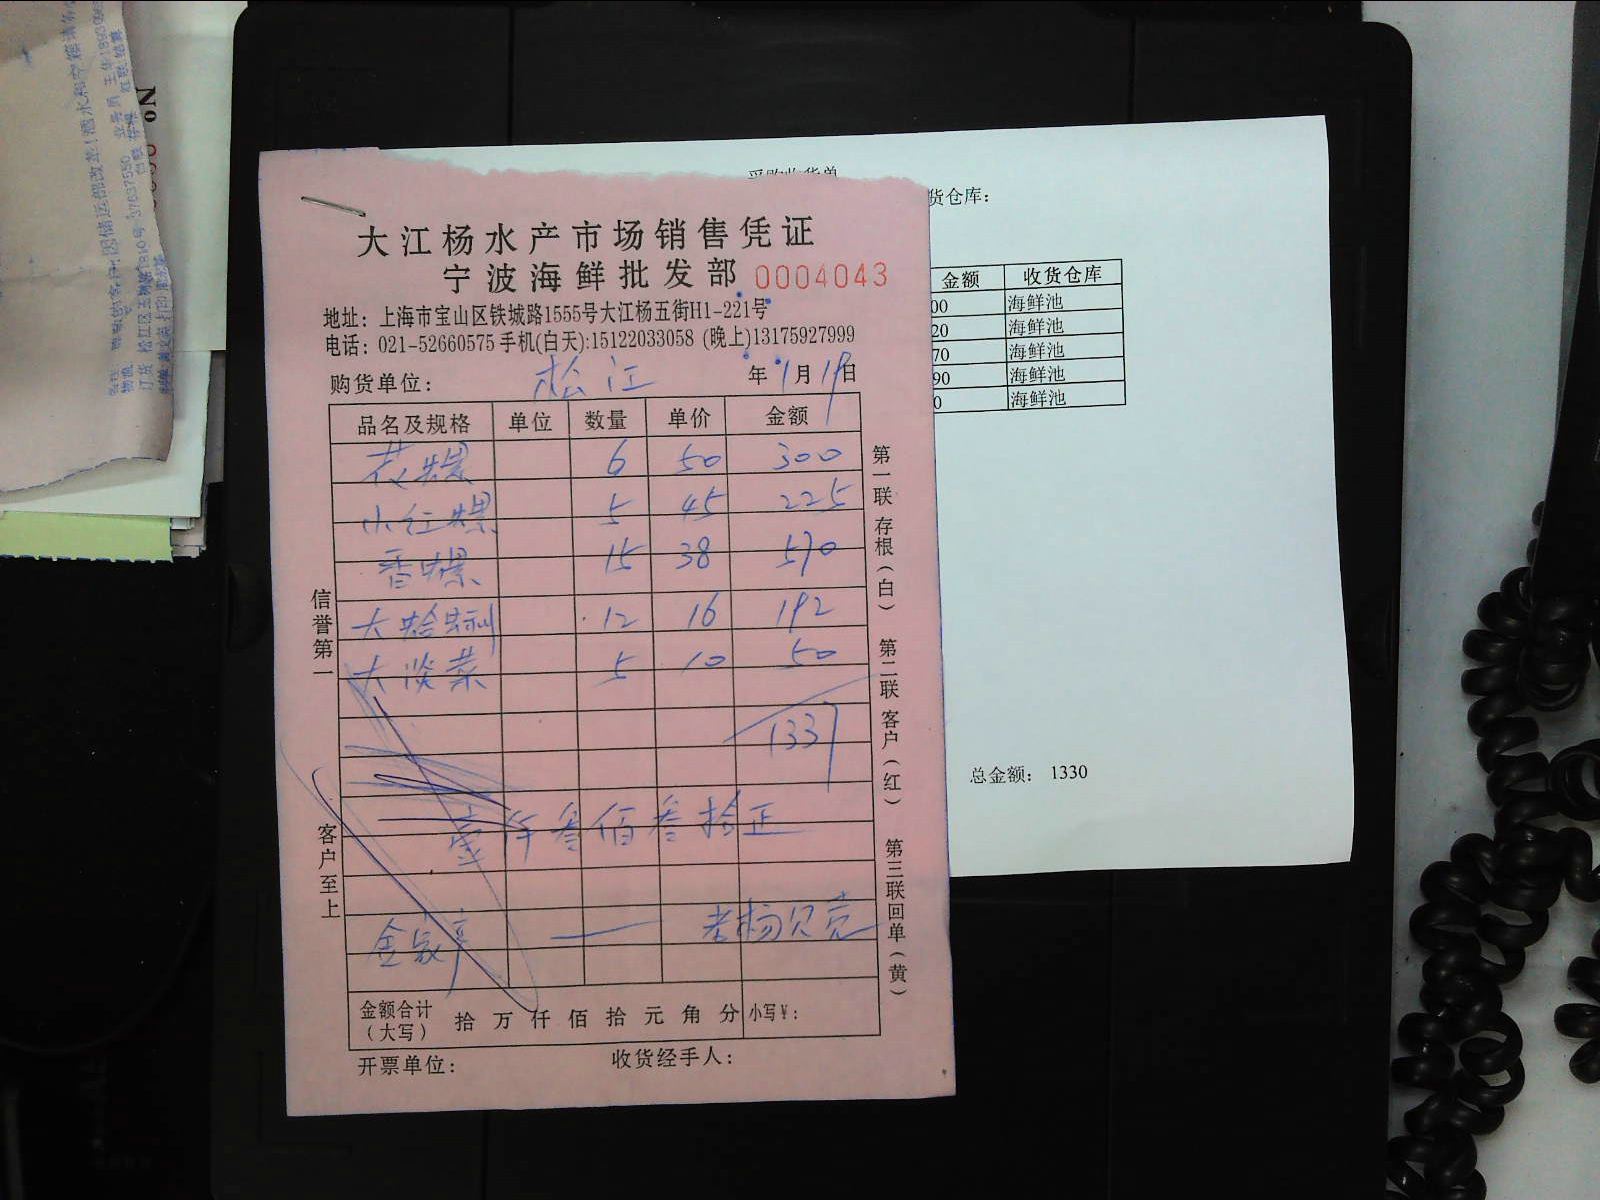 大江杨水产市场销售凭证
宁波海鲜批发部 0004043
地址：上海市宝山区铁城路1555号大江杨五街H1-221号
电话：021-52660575 手机(白天):15122033058 (晚上)13175927999
购货单位： 松江 年 1月19日
品名及规格 单位 数量 单价 金额
花螺 6 50 300
小红螺 5 45 225
香螺 15 38 570
大蛤蜊 12 16 192
大淡菜 5 10 50
1337
壹仟叁佰叁拾正
老杨贝壳
金额合计（大写） 拾 万 仟 佰 拾 元 角 分 小写￥：
开票单位： 收货经手人：
信誉第一
客户至上
第一联存根（白）
第二联客户（红）
第三联回单（黄）
采购收货单
货仓库：
金额 收货仓库
00 海鲜池
20 海鲜池
70 海鲜池
90 海鲜池
0 海鲜池
总金额： 1330
№